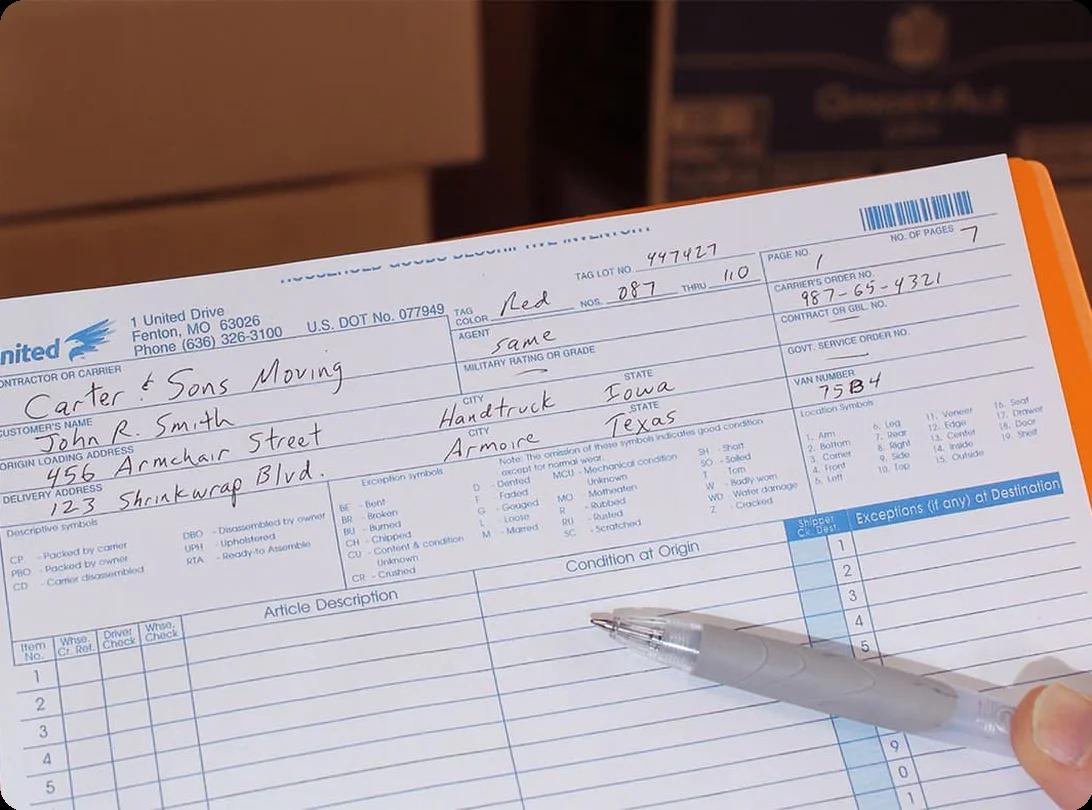 HOUSEHOLD GOODS DESCRIPTIVE INVENTORY
United
1 United Drive
Fenton, MO 63026
Phone (636) 326-3100 U.S. DOT No. 077949
TAG LOT NO. 447427
TAG COLOR Red NOS. 087 THRU 110
PAGE NO. 1 NO. OF PAGES 7
CONTRACTOR OR CARRIER
Carter & Sons Moving
AGENT
same
CARRIER'S ORDER NO.
987-65-4321
MILITARY RATING OR GRADE
—
CONTRACT OR GBL. NO.
—
CUSTOMER'S NAME
John R. Smith
GOVT. SERVICE ORDER NO.
—
ORIGIN LOADING ADDRESS CITY STATE
456 Armchair Street Handtruck Iowa
VAN NUMBER
75B4
DELIVERY ADDRESS CITY STATE
123 Shrinkwrap Blvd. Armoire Texas
Descriptive symbols
CP - Packed by carrier
PBO - Packed by owner
CD - Carrier disassembled
DBO - Disassembled by owner
UPH - Upholstered
RTA - Ready-to Assemble
Exception symbols
Note: The omission of these symbols indicates good condition
except for normal wear.
BE - Bent
BR - Broken
BU - Burned
CH - Chipped
CU - Content & condition
Unknown
CR - Crushed
D - Dented
F - Faded
G - Gouged
L - Loose
M - Marred
MCU - Mechanical condition
Unknown
MO - Motheaten
R - Rubbed
RU - Rusted
SC - Scratched
SH - Short
SO - Soiled
T - Torn
W - Badly worn
WD - Water damage
Z - Cracked
Location Symbols
1. Arm
2. Bottom
3. Corner
4. Front
5. Left
6. Leg
7. Rear
8. Right
9. Side
10. Top
11. Veneer
12. Edge
13. Center
14. Inside
15. Outside
16. Seat
17. Drawer
18. Door
19. Shelf
Item No.
Whse. Cr. Ref.
Driver Check
Whse. Check
Article Description
Condition at Origin
Shipper Ck. Dest.
Exceptions (if any) at Destination
1
2
3
4
5
1
2
3
4
5
9
0
1
GINGER ALE